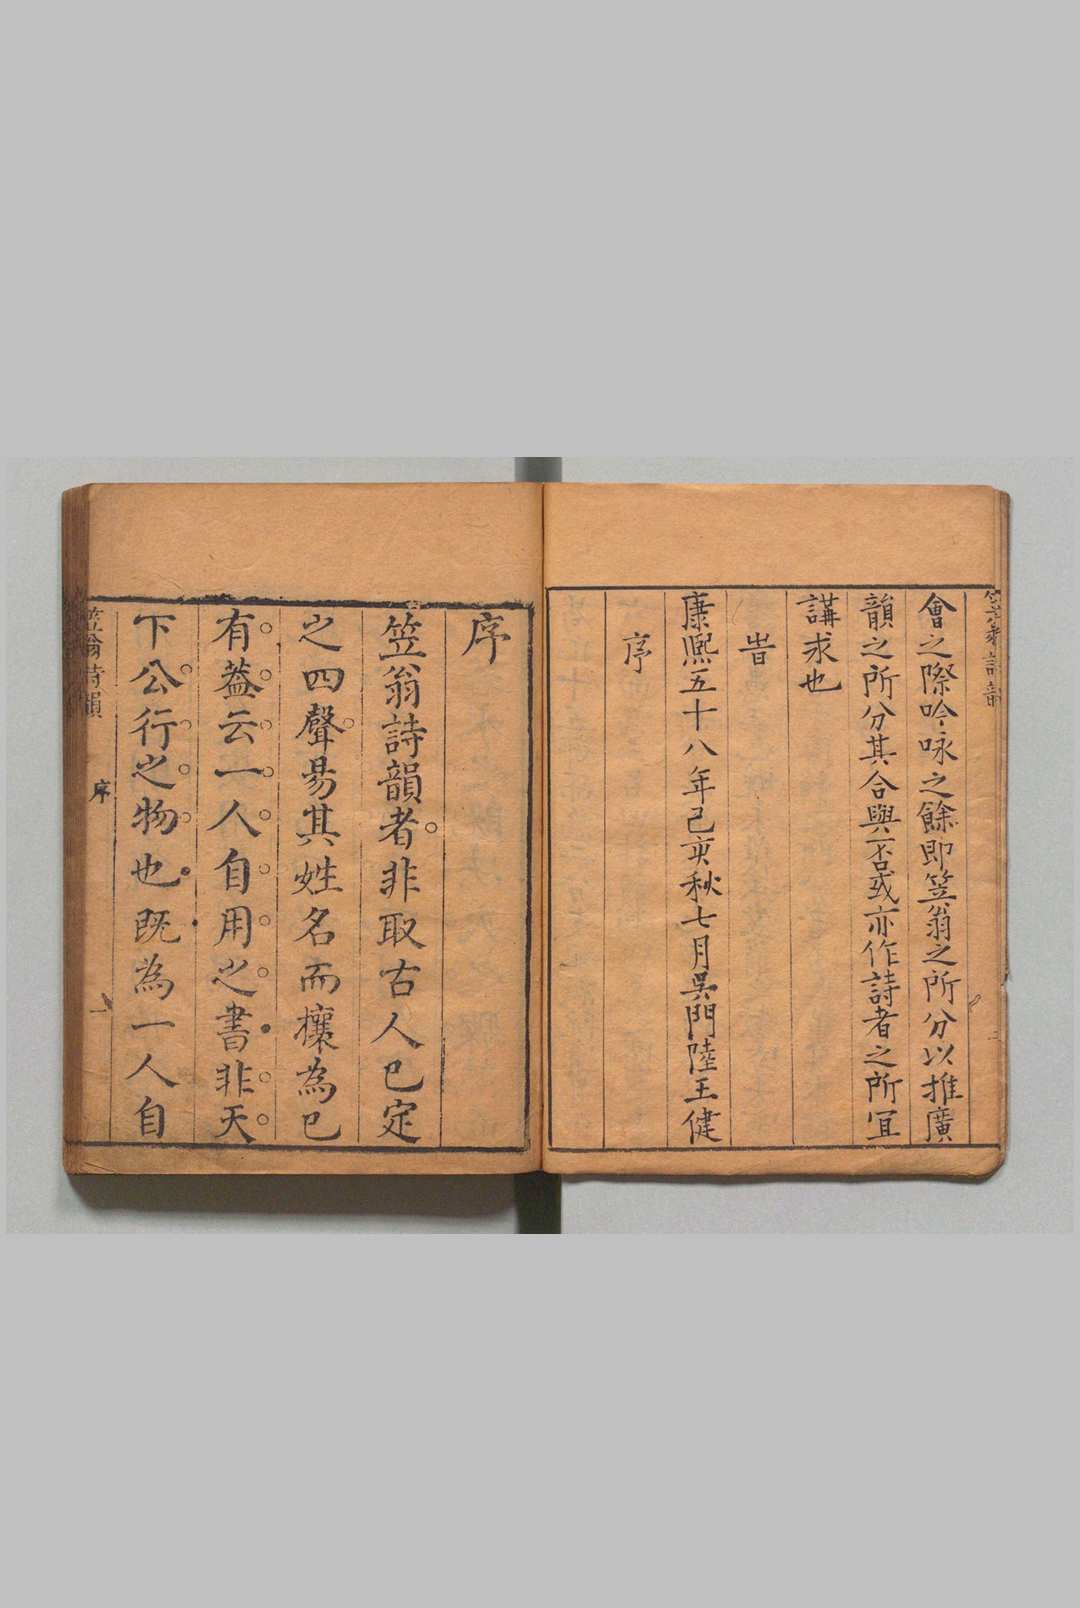 會之際吟咏之餘即笠翁之所分以推廣
韻之所分其合與否或亦作詩者之所宜
講求也
旹
康熙五十八年己亥秋七月吳門陸王健
序
序
笠翁詩韻者非取古人已定
之四聲易其姓名而攘為已
有葢云一人自用之書非天
下公行之物也既為一人自
笠翁詩韻
序
一